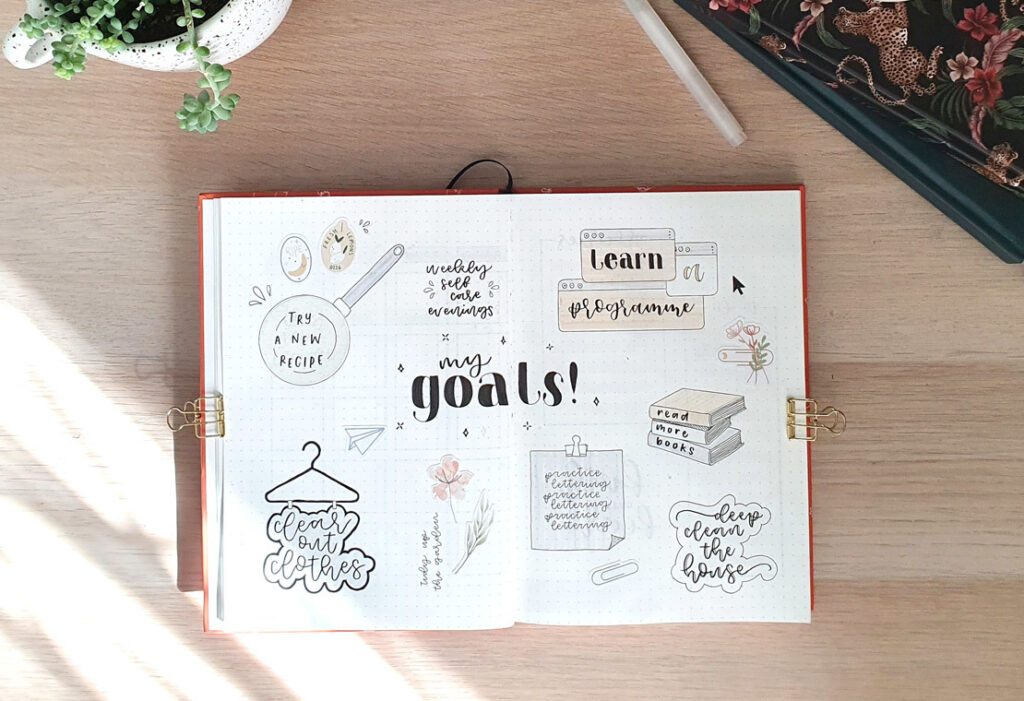 my
goals!
TRY
A NEW
RECIPE
FRESH LEMONS
weekly
self
care
evenings
learn
a
programme
read
more
books
clear
out
clothes
tidy up
the garden
practice
lettering
practice
lettering
practice
lettering
deep
clean
the
house